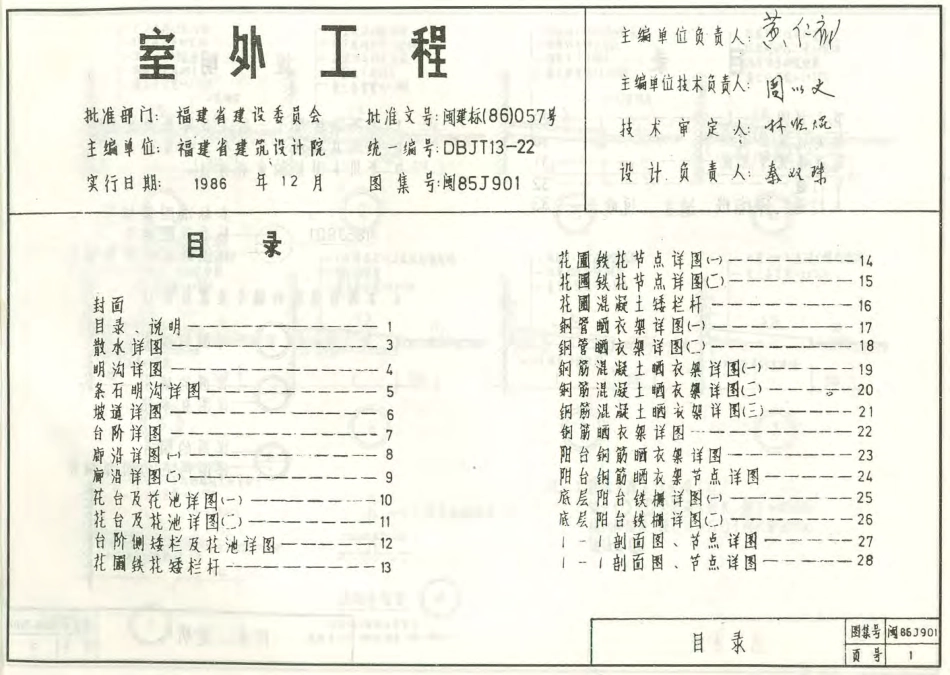 室外工程
批准部门: 福建省建设委员会 批准文号:闽建标(86)057号
主编单位: 福建省建筑设计院 统一编号:DBJT13-22
实行日期: 1986 年 12 月 图集号:闽85J901
主编单位负责人:
主编单位技术负责人: 周以文
技术审定人:
设计负责人:
目录
封面
目录、说明 1
散水详图 3
明沟详图 4
条石明沟详图 5
坡道详图 6
台阶详图 7
廊沿详图(一) 8
廊沿详图(二) 9
花台及花池详图(一) 10
花台及花池详图(二) 11
台阶侧矮栏及花池详图 12
花圃铁花矮栏杆 13
花圃铁花节点详图(一) 14
花圃铁花节点详图(二) 15
花圃混凝土矮栏杆 16
钢管晒衣架详图(一) 17
钢管晒衣架详图(二) 18
钢筋混凝土晒衣架详图(一) 19
钢筋混凝土晒衣架详图(二) 20
钢筋混凝土晒衣架详图(三) 21
钢筋晒衣架详图 22
阳台钢筋晒衣架详图 23
阳台钢筋晒衣架节点详图 24
底层阳台铁栅详图(一) 25
底层阳台铁栅详图(二) 26
1-1剖面图、节点详图 27
1-1剖面图、节点详图 28
目录
图集号 闽85J901
页号 1